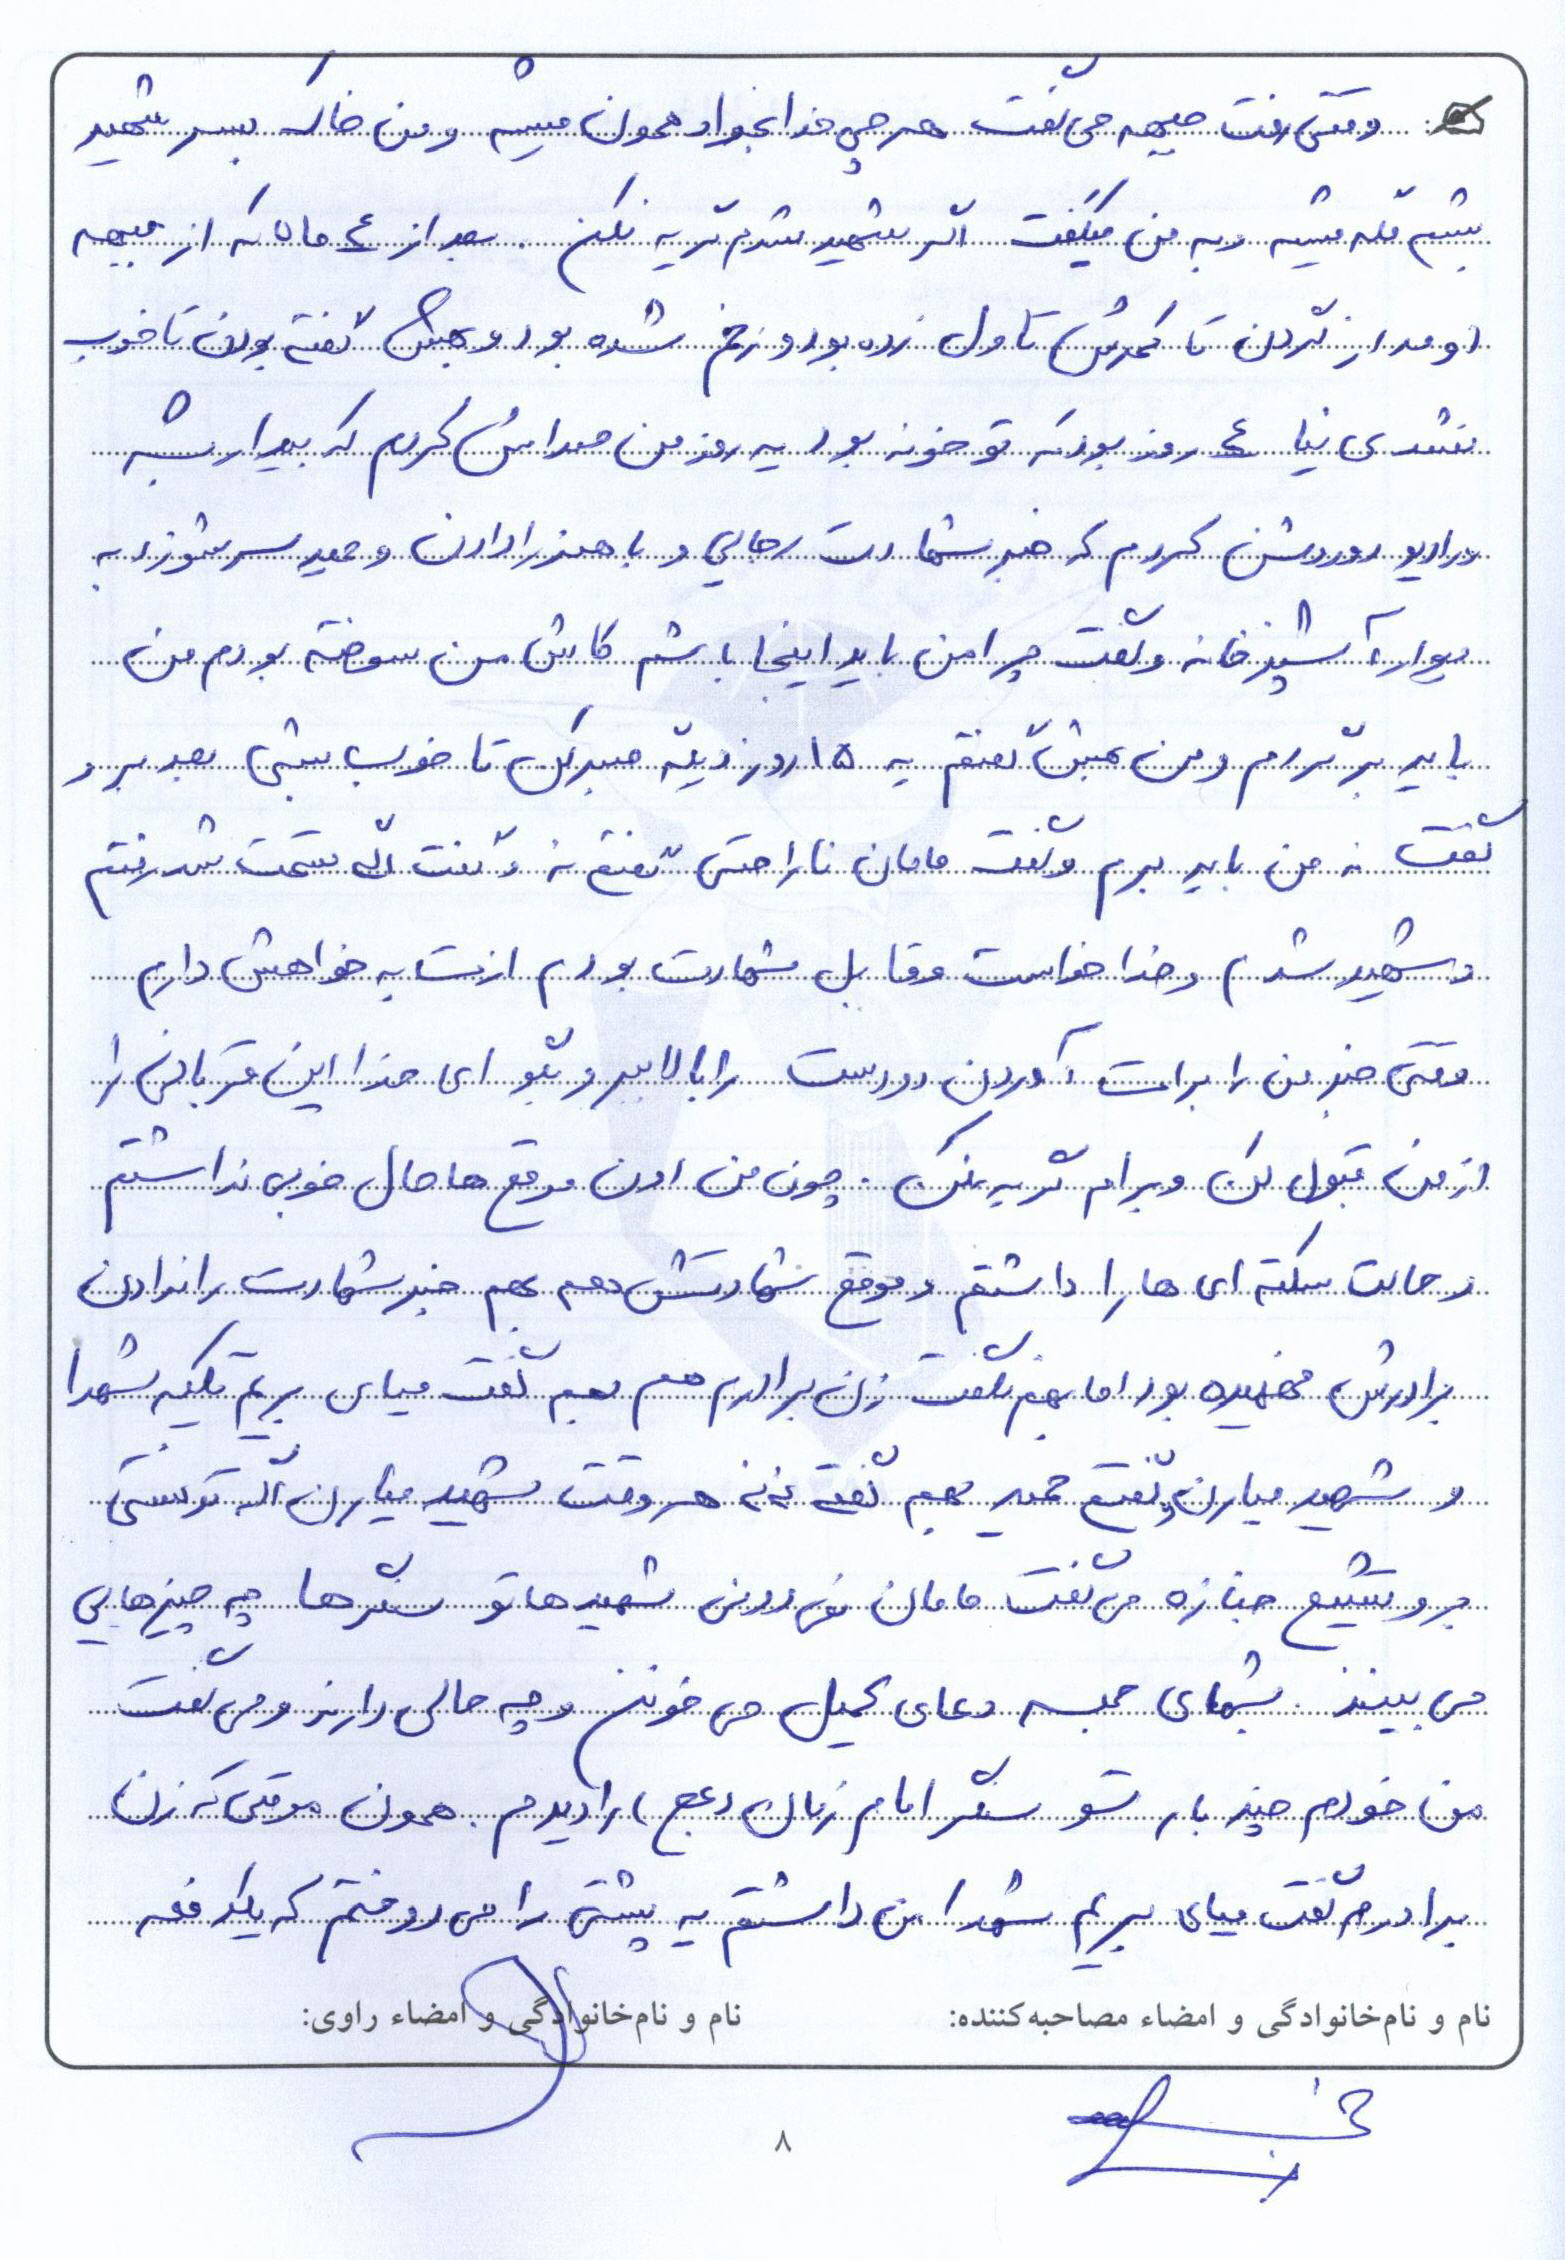 وقتی رفت جبهه می گفت هر چی خدا بخواد همون میشه و من خاک بسر شهید
بشم مگه میشه و به من میگفت اگر شهید شدم گریه نکن . بعد از ٤ ماه که از جبهه
اومد از گردن تا کمرش تاول زده بود و زخم شده بود و بهش گفته بودن تا خوب
نشدی نیا ٤ روز بود که تو خونه بود یه روز من صداش کردم که بیدار بشه
و رادیو رو روشن کردم که خبر شهادت رجایی و باهنر را دادن و حمید سرشو زد به
دیوار آشپزخانه و گفت چرا من باید اینجا باشم کاش من سوخته بودم من
باید برگردم و من بهش گفتم یه ۱۵ روز دیگه صبر کن تا خوب بشی بعد برو
گفت نه من باید برم و گفت مامان ناراحتی گفتم نه و گفت اگه قسمت شد رفتم
و شهید شدم و خدا خواست و قابل شهادت بودم ازت یه خواهش دارم
وقتی خبر من را برات آوردن دو دست را بالا ببر و بگو ای خدا این قربانی را
از من قبول کن و برام گریه نکن . چون من اون موقع ها حال خوبی نداشتم
و حالت سکته ای ها را داشتم و موقع شهادتش هم بهم خبر شهادت را ندادن
برادرش فهمیده بود اما بهم نگفت زن برادرم هم بهم گفت میای بریم تکیه شهدا
و شهید میارن و گفتم حمید بهم گفته ننه هر وقت شهید میارن اگه تونستی
برو تشییع جنازه می گفت مامان نمی دونی شهیدها تو سنگرها چه چیزهایی
می بینند . شبهای جمعه دعای کمیل می خونن و چه حالی دارند و می گفت
من خودم چند بار تو سنگر امام زمان (عج) را دیدم . همون موقعی که زن
برادرم گفت میای بریم شهدا من داشتم یه پشتی را می دوختم که یکدفعه
نام و نام‌خانوادگی و امضاء مصاحبه‌کننده: نام و نام‌خانوادگی و امضاء راوی:
۸